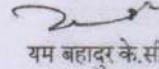 यम बहादुर के.सी